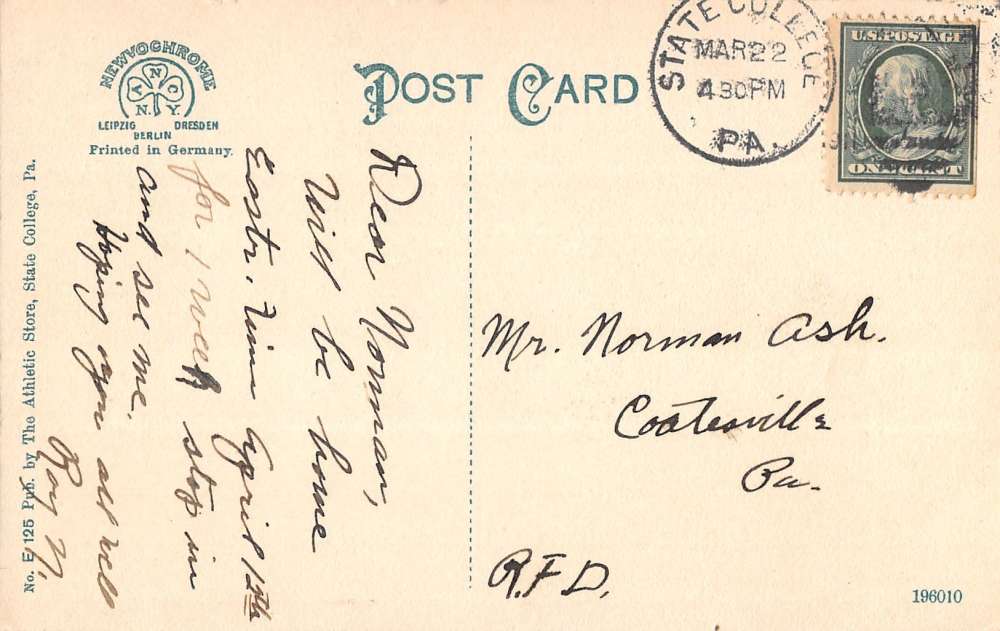 NEWVOCHROME
A N C
N. Y.
LEIPZIG DRESDEN
BERLIN
Printed in Germany.
POST CARD
STATE COLLEGE
MAR 22
4 30 PM
PA.
U.S. POSTAGE
ONE CENT
Dear Norman,
Will be home
Eastr. Time April 15th
for 1 week stop in
and see me.
Hoping you all well
Roy N.
Mr. Norman Ash.
Coatesville
Pa.
R.F.D.
No. E 125 Pub. by The Athletic Store, State College, Pa.
196010